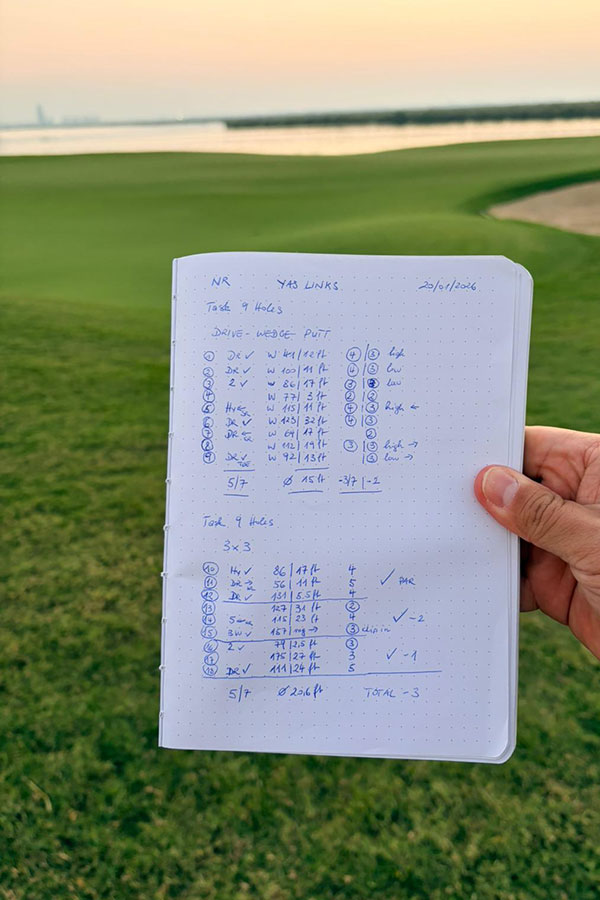 NR YAS LINKS 20/01/2026
Task 9 Holes
DRIVE - WEDGE PUTT
1 DR ✓ W 41 | 12 ft 4 | 3 high
2 DR ✓ W 100 | 11 ft 4 | 3 low
3 2 ✓ W 86 | 17 ft 3 | low
4 W 77 | 3 ft 2 | 2
5 Hy W 115 | 11 ft 4 | 3 high ←
6 DR ✓ W 123 | 32 ft 4 | 3
7 DR W 69 | 17 ft 2
8 W 112 | 19 ft 3 | 3 high →
9 DR ✓ W 92 | 13 ft | 3 low →
5/7 Ø 15 ft -3/7 | -2
Task 9 Holes
3x3
10 Hy ✓ 86 | 17 ft 4
11 DR 56 | 11 ft 5 ✓ PAR
12 DR ✓ 131 | 5,5 ft 4
13 127 | 31 ft 2
14 5 115 | 23 ft 4 ✓ -2
15 3W ✓ 157 | → 3 chip in
16 2 ✓ 79 | 2,5 ft 3
17 175 | 27 ft 3 ✓ -1
18 DR ✓ 111 | 24 ft 5
5/7 Ø 20,6 ft TOTAL -3